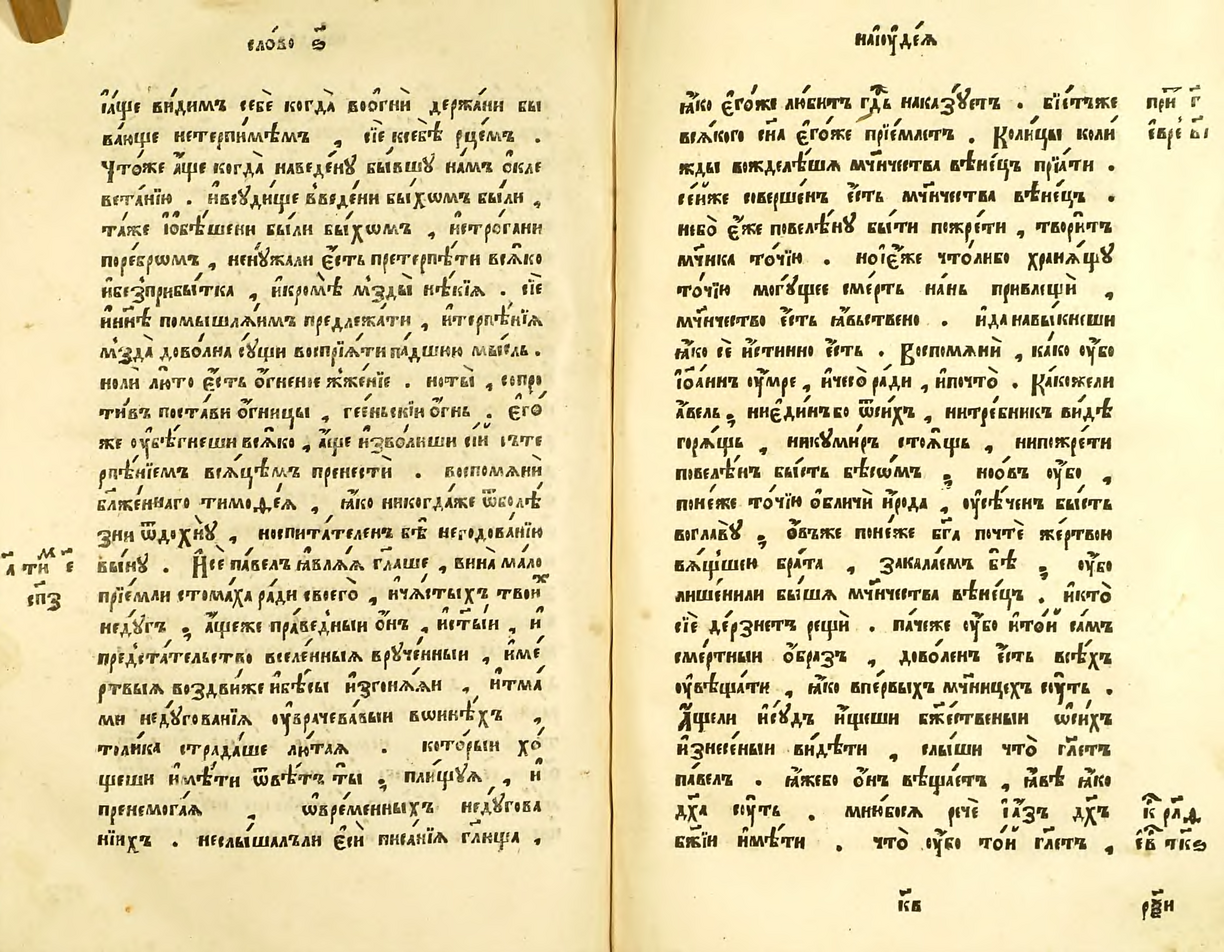 сло́во ѕ҃
і҆а́ще ви́димъ себѐ когда̀ воѻгнѝ держа́ни бы
ва́юще нетерпи́мѣмъ , сїѐ ксебѣ̀ рце́мъ .
Что́же а҆́ще когда̀ наведе́нꙋ бы́вшꙋ на́мъ ѻ҆кле
вета́нїю . и҆всꙋди́ще в̾ведени бы́хѡмъ бы́ли ,
та́же і҆ѻбѣ́шени бы́ли бы́хѡмъ , и҆стро́гани
поре́брѡмъ , ненꙋжали є҆́сть претерпѣ́ти вся́ко
и҆безприбы́тка , и҆кромѣ̀ мзды̀ нѣ́кїѧ . сїѐ
и҆ны́нѣ помышлѧ́имъ предлежа́ти , и҆терпѣ́нїѧ
мзда̀ дово́лна сꙋ́щи воспрїѧ́ти па́дшюю мы́сль .
ноли́ лю́то є҆́сть ѻ҆́гненое жже́нїе . ноты̀ , сопро
ти́въ поста́ви ѻ҆́гницы , гее́ньскїи ѻ҆́гнь . є҆го́
же ᲂу҆бѣ́гнеши вся́ко , а҆́ще и҆зво́лиши сїѝ съте
рпѣ́нїемъ вся́цѣмъ пренестѝ . воспомѧнѝ
блаже́ннаго тимоѳе́ѧ , ꙗ҆́ко никогда́же ѿболѣ́
зни ѿдохнꙋ̀ , носпита́теленъ бѣ̀ негодова́нїю
вы́нꙋ . И҆сѐ па́велъ ꙗ҆влѧ́ѧ гл҃аше , вина̀ ма́ло
прїе́мли стома́ха ра́ди своего̀ , и҆ча́стыхъ твои́х
недꙋ́гъ , а҆́щеже пра́ведныи ѻ҆́нъ , и҆ст҃ы́и , и҆
предста́тельство вселе́нныѧ врꙋче́нныи , и҆ме́
ртвыѧ воздви́же и҆бѣ́сы и҆згонѧ́ѧи , и҆тма́
ми недꙋгова́нїѧ ᲂу҆врачева́выи вѡинѣ́хъ ,
толи́ка страда́ше лю́таѧ . кото́рыи хо́
щеши и҆мѣ́ти ѿвѣ́тъ ты̀ , пли́щꙋѧ , и҆
пренемога́ѧ , ѡвре́менныхъ недꙋгова
нїихъ . неслы́шалъли є҆сѝ писа́нїѧ гл҃юща ,
м҃
а҃ ти е҃
сп҃з
наїꙋде́ѧ
ꙗ҆́ко є҆го́же лю́битъ гд҇ь наказꙋ́етъ . бїе́тъже
вся́кого сн҃а є҆го́же прїе́млетъ . Коли́цы коли́
жды вожделѣ́шѧ мч҃ничества вѣне́цъ прїѧ́ти .
се́йже соверше́нъ є҆́сть мч҃ничества вѣне́цъ .
небо̀ є҆́же повеле́нꙋ бы́ти пожре́ти , твори́тъ
мч҃ника то́чїю . ної҆є҆́же что́либо хранѧ́щꙋ
то́чїю могꙋ́щее сме́рть на́нь привлещѝ ,
мч҃ничество є҆́сть ꙗ҆́вьствено . и҆да навы́кнеши
ꙗ҆́ко сѐ и҆́стинно є҆́сть . Воспомѧнѝ , ка́ко ᲂу҆́бо
і҆ѻа́ннъ ᲂу҆́мре , и҆чесо̀ ра́ди , и҆почто̀ . Ка́кожели
а҆́вель , ниє҆ди́нъбо ѿси́хъ , нитре́бникъ ви́дѣ
горѧ́щь , никꙋми́ръ стоѧ́щь , нипожре́ти
повеле́нъ бы́сть бѣсѡ́мъ , ноѻ́въ ᲂу҆́бо ,
поне́же то́чїю ѻ҆бличѝ и҆́рода , ᲂу҆сѣ́ченъ бы́сть
воглавꙋ̀ , ѻ҆́въже поне́же бг҃а почтѐ же́ртвою
вѧ́щшею бра́та , закала́емъ бѣ̀ , ᲂу҆́бо
лише́нили бы́шѧ мч҃ничества вѣне́цъ . и҆кто̀
сїѐ де́рзнетъ рещѝ . па́чеже ᲂу҆́бо и҆то́й са́мъ
сме́ртныи ѻ҆́бразъ , дово́ленъ є҆́сть всѣ́хъ
ᲂу҆вѣща́ти , ꙗ҆́ко впе́рвыхъ мч҃ницехъ сꙋ́ть .
А҆́щели и҆сꙋ́дъ и҆́щеши бж҃ественыи ѡси́хъ
и҆знесе́ныи ви́дѣти , слы́ши что̀ гл҃етъ
па́велъ . ꙗ҆́жебо ѻ҆́нъ вѣща́етъ , ꙗ҆́вѣ ꙗ҆́ко
дх҃а сꙋ́ть . мню́босѧ речѐ і҆а҆́зъ дх҃ъ
бж҃їи и҆мѣ́ти . что̀ ᲂу҆́бо то́й гл҃етъ ,
при́ г҃
є҆вре́ в҃і
к҃
к҃в